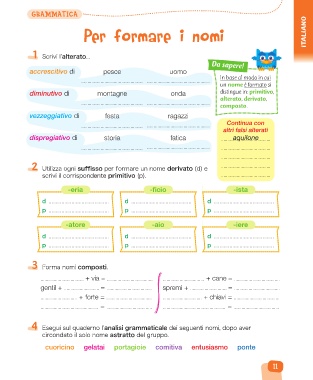 GRAMMATICA
ITALIANO
Per formare i nomi
1 Scrivi l'alterato...
accrescitivo di pesce uomo
diminutivo di montagne onda
vezzeggiativo di festa ragazzi
dispregiativo di storia fatica
Da sapere!
In base al modo in cui
un nome è formato si
distingue in: primitivo,
alterato, derivato,
composto.
Continua con
altri falsi alterati
aquilone
2 Utilizza ogni suffisso per formare un nome derivato (d) e
scrivi il corrispondente primitivo (p).
-eria -ficio -ista
d d d
p p p
-atore -aio -iere
d d d
p p p
3 Forma nomi composti.
+ via = + cane =
gentil + = spremi + =
+ forte = + chiavi =
4 Esegui sul quaderno l'analisi grammaticale dei seguenti nomi, dopo aver
circondato il solo nome astratto del gruppo.
cuoricino gelatai portagioie comitiva entusiasmo ponte
11